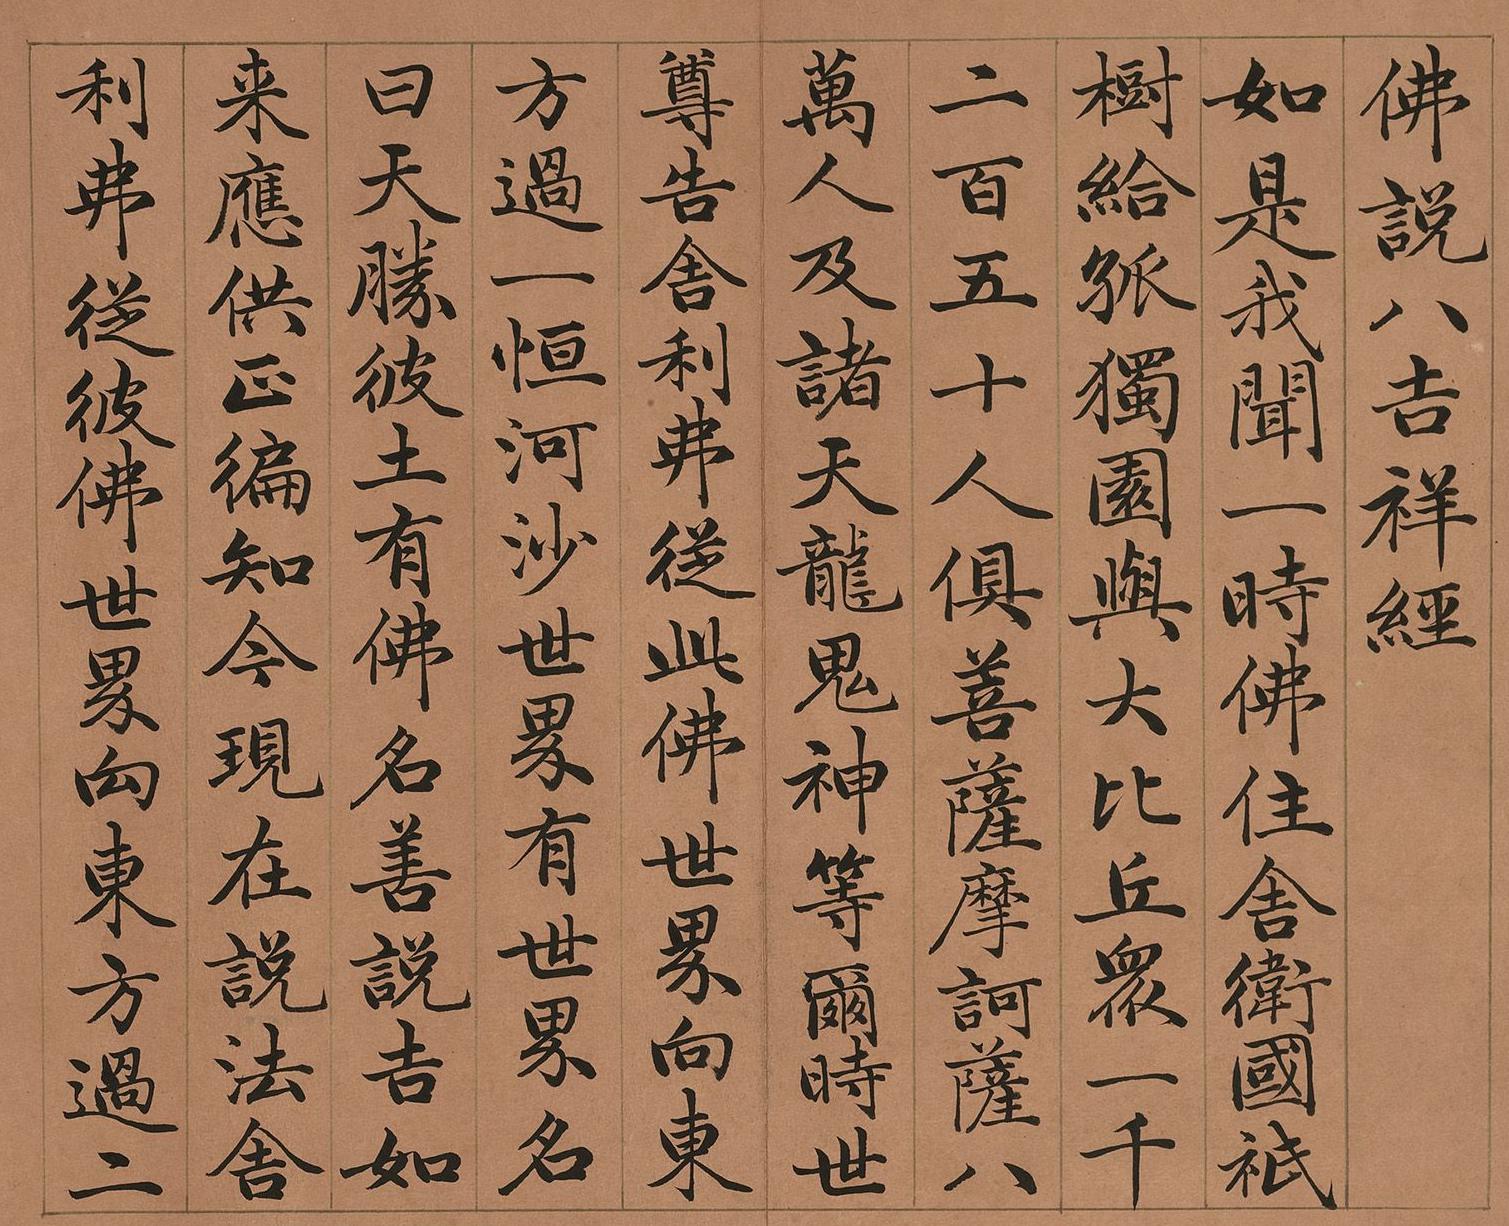 佛説八吉祥經
如是我聞一時佛住舍衛國祇
樹給孤獨園與大比丘衆一千
二百五十人俱善薩摩訶薩八
萬人及諸天龍鬼神等爾時世
尊告舍利弗從此佛世界向東
方過一恒河沙世界有世界名
曰天勝彼土有佛名善説吉如
来應供正徧知今現在説法舍
利弗從彼佛世界向東方過二